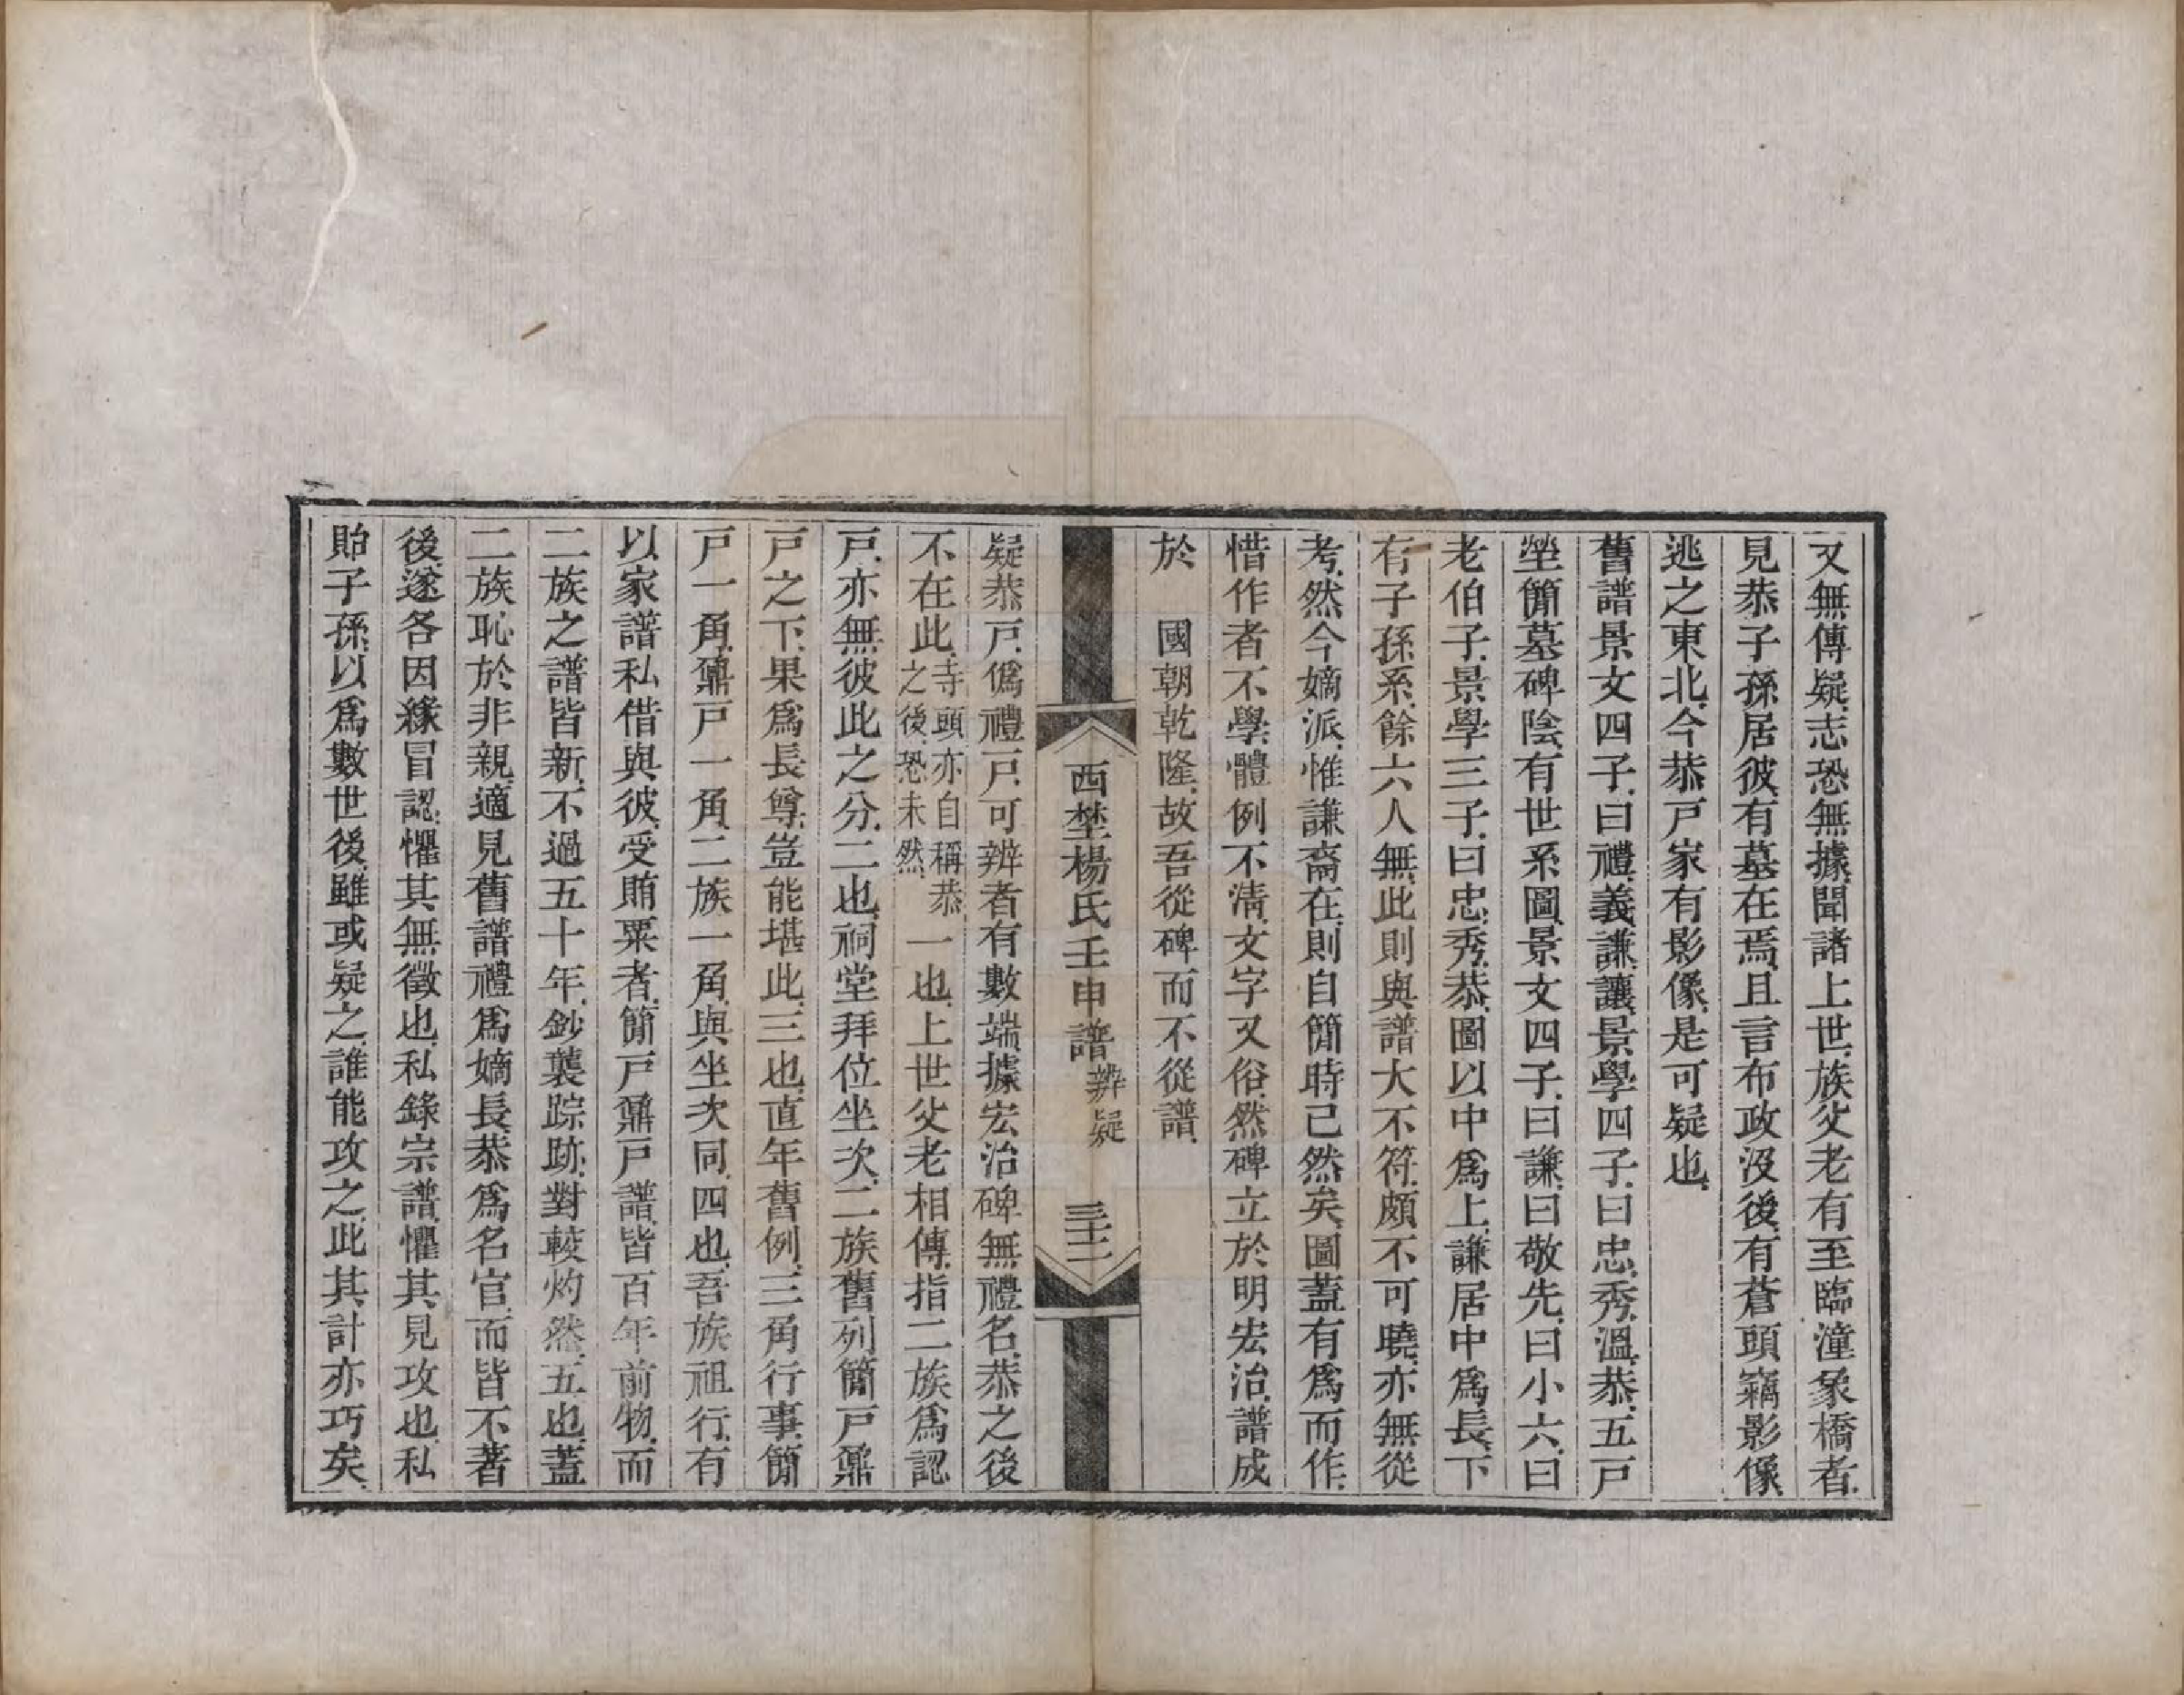 又無傳疑志恐無據聞諸上世族父老有至臨潼象橋者
見恭子孫居彼有墓在焉且言布政沒後有蒼頭竊影像
逃之東北今恭戸家有影像是可疑也
舊譜景文四子曰禮義謙讓景學四子曰忠秀溫恭五戸
塋簡墓碑陰有世系圖景文四子曰謙曰敬先曰小六曰
老伯子景學三子曰忠秀恭圖以中爲上謙居中爲長下
有子孫系餘六人無此則與譜大不符頗不可曉亦無從
考然今嫡派惟謙裔在則自簡時已然矣圖蓋有爲而作
惜作者不學體例不淸文字又俗然碑立於明宏治譜成
於　國朝乾隆故吾從碑而不從譜
西埜楊氏壬申譜 辨疑 三十二
疑恭戸僞禮戸可辨者有數端據宏治碑無禮名恭之後
不在此寺頭亦自稱恭之後恐未然一也上世父老相傳指二族爲認
戸亦無彼此之分二也祠堂拜位坐次二族舊列簡戸鼐
戸之下果爲長尊豈能堪此三也直年舊例三角行事簡
戸一角鼐戸一角二族一角與坐次同四也吾族祖行有
以家譜私借與彼受賄粟者簡戸鼐戸譜皆百年前物而
二族之譜皆新不過五十年鈔襲踪跡對較灼然五也蓋
二族恥於非親適見舊譜禮爲嫡長恭爲名官而皆不著
後遂各因緣冒認懼其無徵也私錄宗譜懼其見攻也私
貽子孫以爲數世後雖或疑之誰能攻之此其計亦巧矣